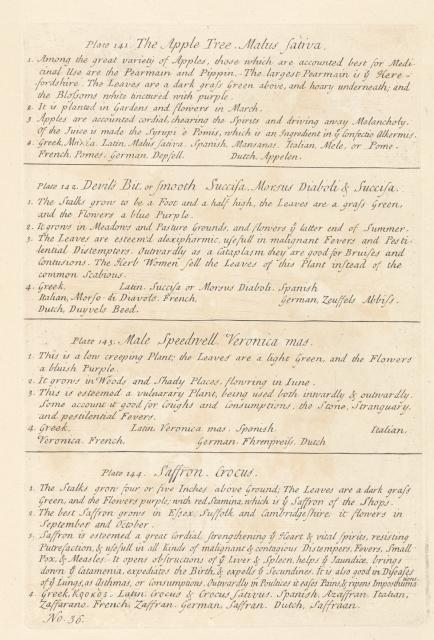 Plate 141. The Apple Tree. Malus sativa.
1. Among the great variety of Apples, those which are accounted best for Medi-
cinal Use are the Pearmain and Pippin. The largest Pearmain is ỹ Here-
fordshire. The Leaves are a dark graſs Green above, and hoary underneath; and
the Bloſsoms white tinctured with purple.
2. It is planted in Gardens and flowers in March.
3. Apples are accounted cordial, chearing the Spirits and driving away Melancholy.
Of the Juice is made the Syrupi e Pomis, which is an Ingredient in ỹ Confectio Alkermis.
4. Greek, Latin, Malus sativa. Spanish, Mansanas. Italian, Mele, or Pome.
French, Pomes. German, Depfell. Dutch, Appelen.
Plate 142. Devil's Bit, or smooth Succisa. Morsus Diaboli & Succisa.
1. The Stalks grow to be a Foot and a half high, the Leaves are a graſs Green,
and the Flowers a blue Purple.
2. It grows in Meadows and Pasture Grounds, and flowers ỹ latter end of Summer.
3. The Leaves are esteem'd alexipharmic, usefull in malignant Fevers and Pesti-
lential Distempers. Outwardly as a Cataplasm they are good for Bruises and
Contusions. The Herb Women sell the Leaves of this Plant instead of the
common Scabious.
4. Greek, Latin, Succisa or Morsus Diaboli. Spanish
Italian, Morso di Diavolo. French, German, Zeuffels Abbiſs.
Dutch, Duyvels Beed.
Plate 143. Male Speedwell. Veronica mas.
1. This is a low creeping Plant; the Leaves are a light Green, and the Flowers
a bluish Purple.
2. It grows in Woods and Shady Places, flowring in Iune.
3. This is esteemed a vulnerary Plant, being used both inwardly & outwardly.
Some account it good for Coughs and Consumptions, the Stone, Stranguary,
and pestilential Fevers.
4. Greek, Latin, Veronica mas. Spanish. Italian,
Veronica. French, German, Ehrenpreiſs. Dutch
Plate 144. Saffron. Crocus.
1. The Stalks grow four or five Inches above Ground; The Leaves are a dark graſs
Green, and the Flowers purple, with red Stamina, which is ỹ Saffron of the Shops.
2. The best Saffron grows in Eſsex, Suffolk and Cambridgeshire: it flowers in
September and October.
3. Saffron is esteemed a great Cordial, strengthening ỹ Heart & vital spirits, resisting
Putrefaction, & usefull in all kinds of malignant & contagious Distempers, Fevers, Small
Pox, & Measles. It opens obstructions of ỹ Liver & Spleen, helps ỹ Jaundice, brings
down ỹ Catamenia, expediates the Birth, & expells ỹ Secundines. It is also good in Diseases
of ỹ Lungs, as Asthmas, or Consumptions. Outwardly in Poultices it eases Pains, & ripens Impostumations.
4. Greek, Κρόκος. Latin, Crocus & Crocus Sativus. Spanish, Azaffran. Italian,
Zaffarano. French, Zaffran. German, Saffran. Dutch, Saffraan.
No. 36.